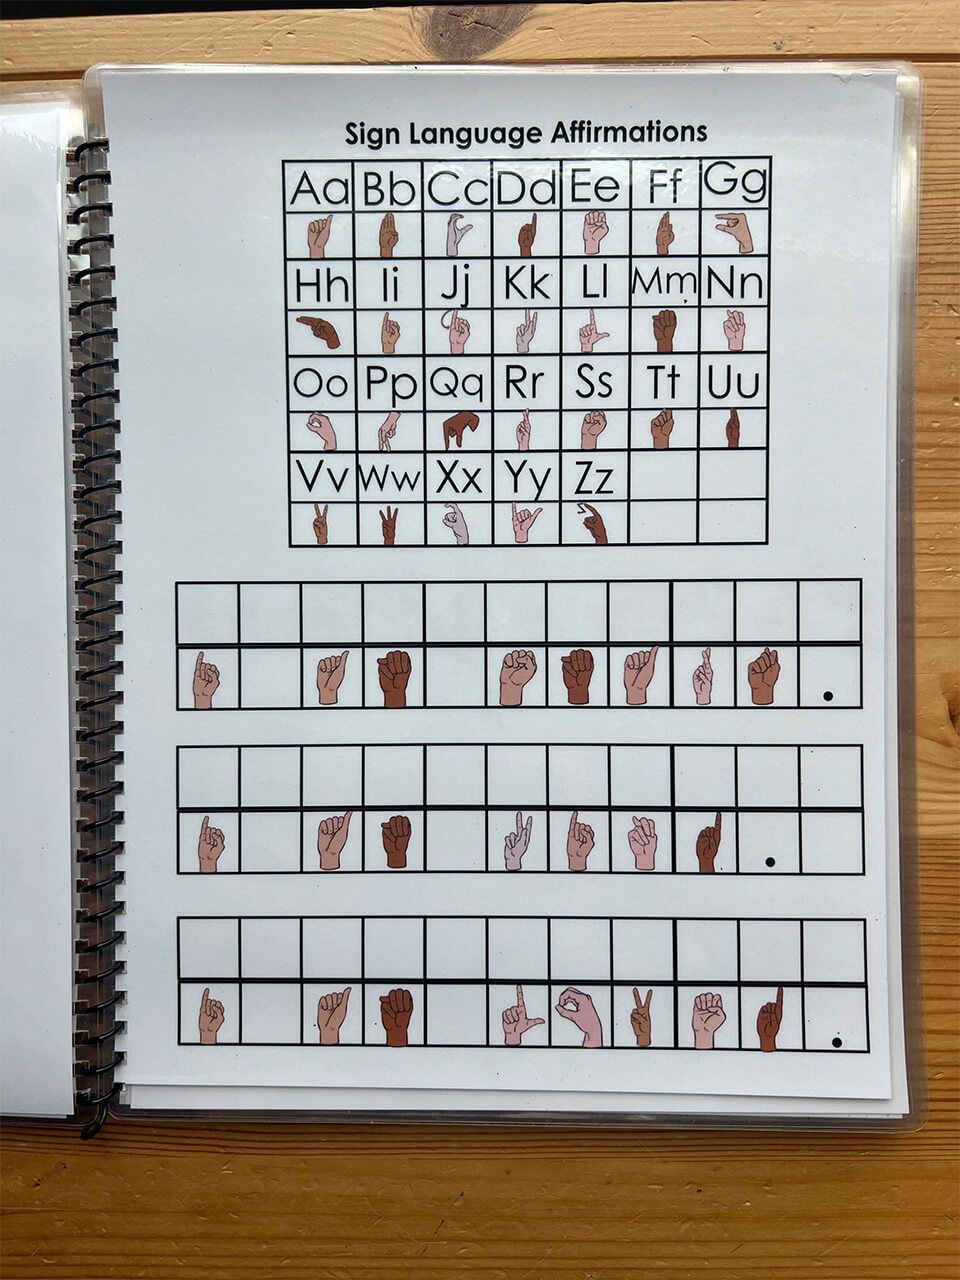 Sign Language Affirmations
Aa Bb Cc Dd Ee Ff Gg
Hh Ii Jj Kk Ll Mm Nn
Oo Pp Qq Rr Ss Tt Uu
Vv Ww Xx Yy Zz
.
.
.